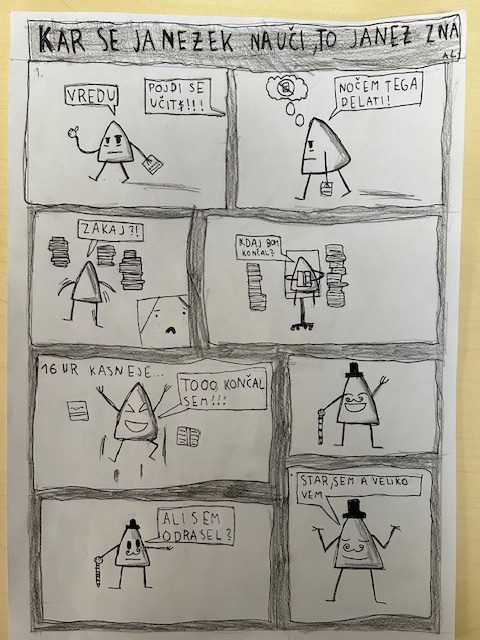 KAR SE JANEZEK NAUČI, TO JANEZ ZNA
1.
VREDU
POJDI SE
UČIT!!!
NOČEM TEGA
DELATI!
ZAKAJ?!
KDAJ BOM
KONČAL?
16 UR KASNEJE...
TOOO, KONČAL
SEM!!!
ALI SEM
ODRASEL?
STAR, SEM A VELIKO
VEM